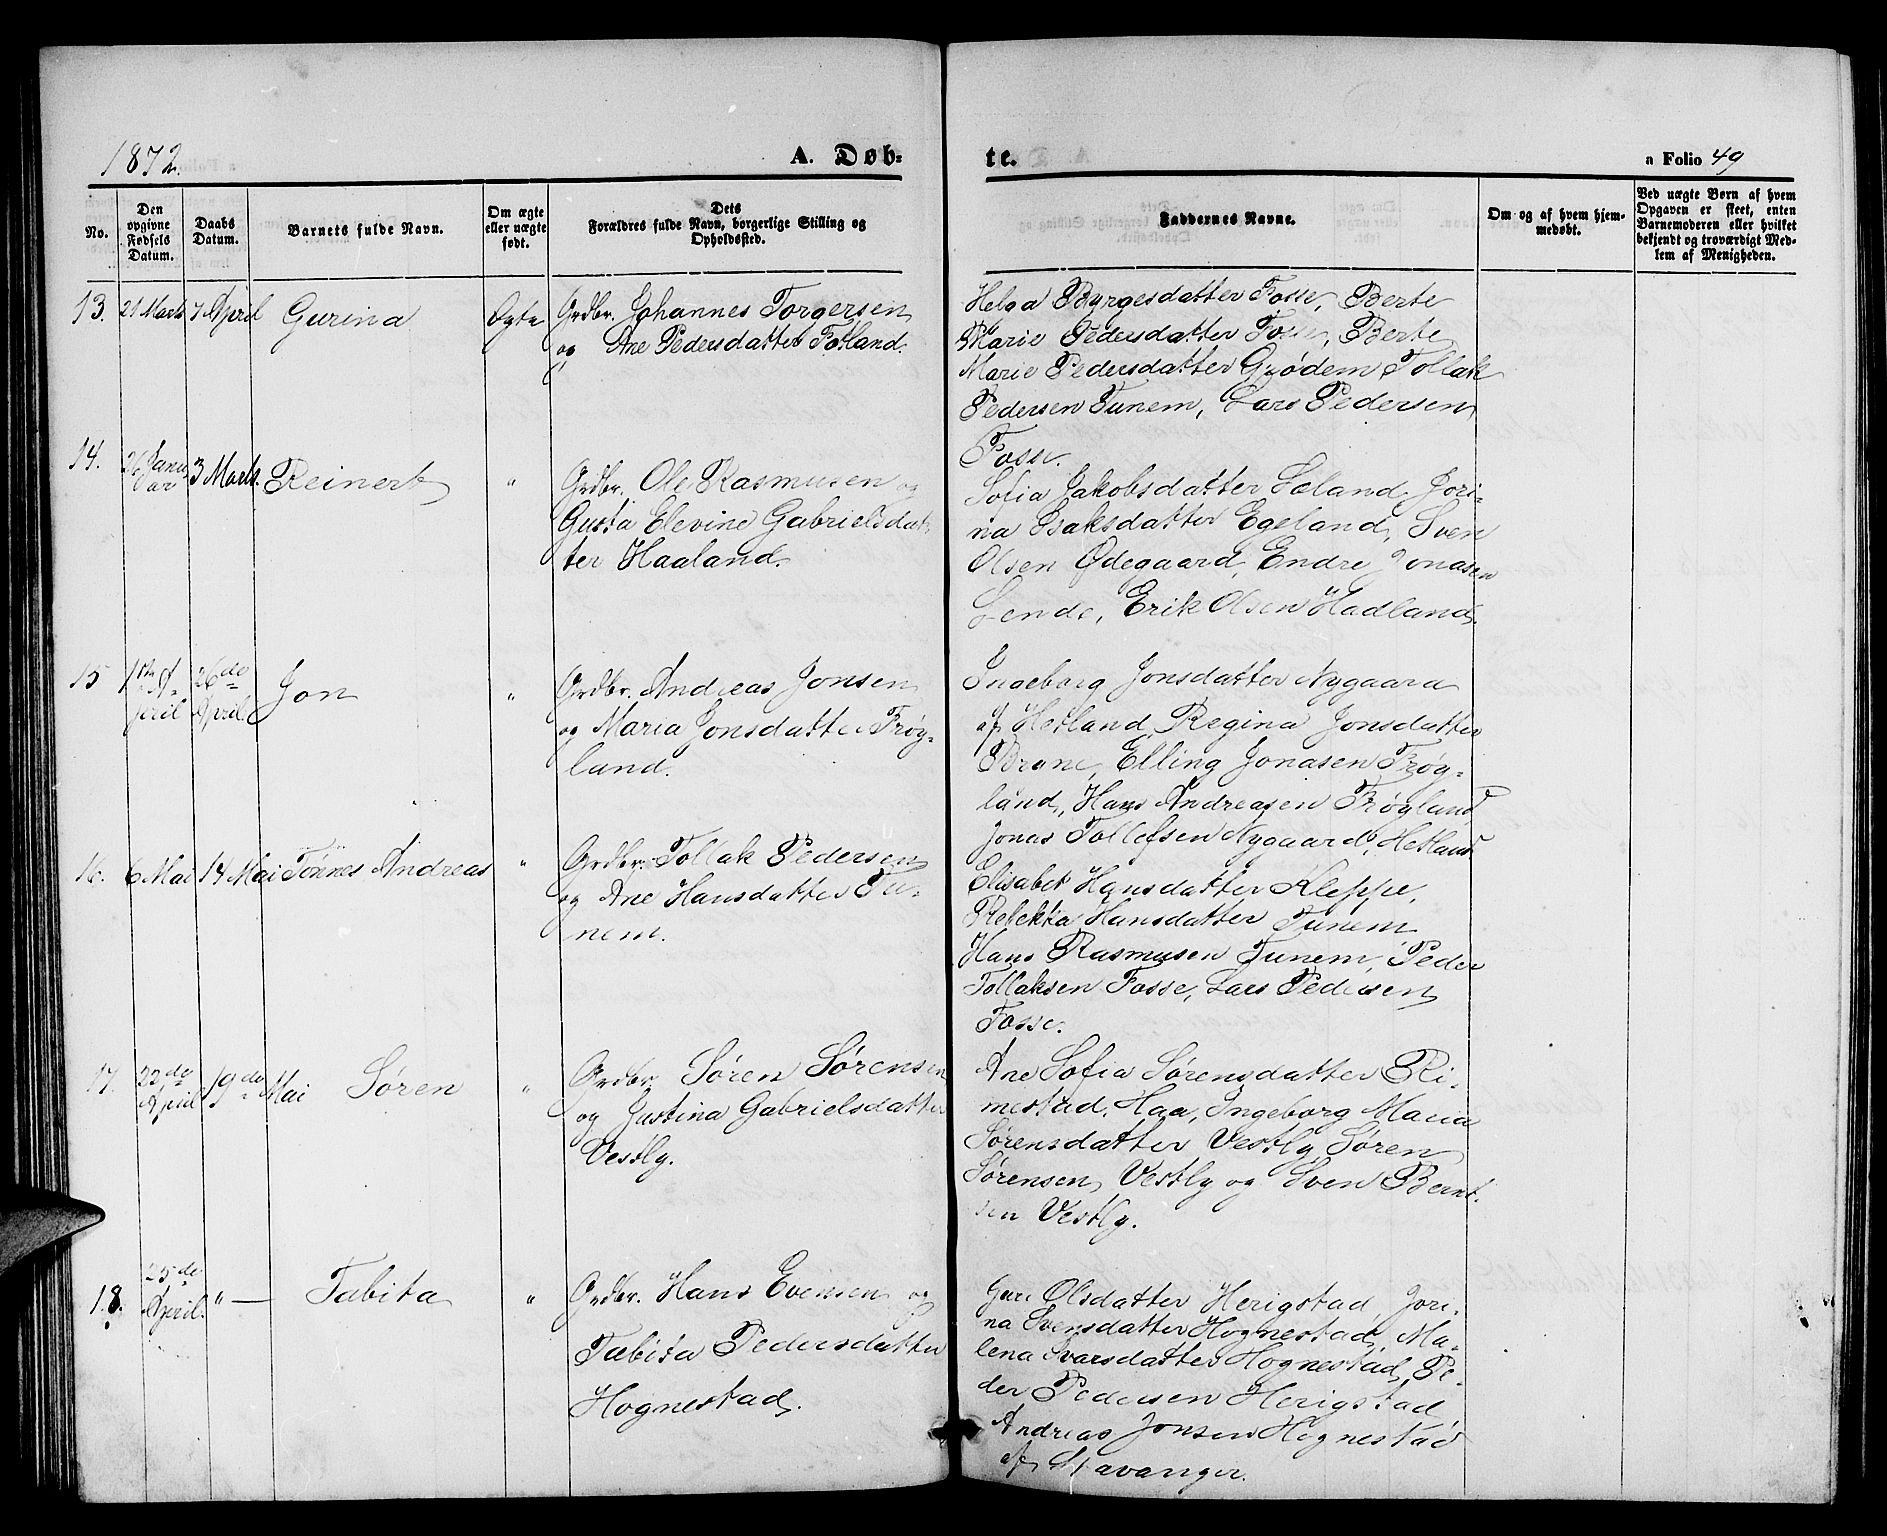 1872.
A. Døb-
te.
a Folio 49
No.
Den
opgivne
Fødsels
Datum.
Daabs
Datum.
Barnets fulde Navn.
Om ægte
eller uægte
født.
Dets
Forældres fulde Navn, borgerlige Stilling og
Opholdssted.
Faddernes Navne.
Om og af hvem hjem-
medøbt.
Ved uægte Børn af hvem
Opgaven er skeet, enten
Barnemoderen eller hvilket
bekjendt og troværdigt Med-
lem af Menigheden.
13. 21 Marts 7 April Gurina Ægte
Grdbr. Johannes Torgersen
og Ane Pedersdatter Fotland.
Helga Børgesdatter Fosse, Berte
Marie Pedersdatter Fosse, Berte
Marie Pedersdatter Grødem, Tollak
Pedersen Tunem, Lars Pedersen
Fosse.
14. 26 Janu-
ar 3 Marts. Reinert "
Grdbr. Ole Rasmusen og
Gusta Elevine Gabrielsdat-
ter Haaland.
Sofia Jakobsdatter Læland, Jori-
na Isaksdatter Egeland, Sven
Olsen Ødegaard, Endre Jonasen
Lende, Erik Olsen Hadland.
15 1ste A-
pril 26de
April. Jon "
Grdbr. Andreas Jonsen
og Maria Jonsdatter Frøy-
land.
Ingeborg Jonsdatter Nygaard
af Hetland, Regina Jonsdatter
Bryne, Elling Jonasen Frøy-
land, Hans Andreasen Frøyland
Jonas Tollefsen Nygaard, Hetland
16. 6 Mai 14 Mai Tønnes Andreas "
Grdbr. Tollak Pedersen
og Ane Hansdatter Tu-
nem.
Elisabet Hansdatter Kleppe,
Rebekka Hansdatter Tunem
Hans Rasmusen Tunem, Peder
Tollaksen Fosse, Lars Pedersen
Fosse.
17. 22de
April 19de Mai Søren "
Grdbr. Søren Sørensen
og Justina Gabrielsdatter
Vestly.
Ane Sofia Sørensdatter Ri-
mestad, Haa, Ingeborg Maria
Sørensdatter Vestly, Søren
Sørensen Vestly og Sven Bernt-
sen Vestly.
18. 25de
April. " — Tabita "
Grdbr. Hans Evensen og
Tabita Pedersdatter
Hognestad.
Guri Olsdatter Herigstad, Jori-
na Svensdatter Hognestad, Ma-
lena Ivarsdatter Hognestad, Pe-
der Pedersen Herigstad
Andreas Jonsen Hognestad
af Stavanger.